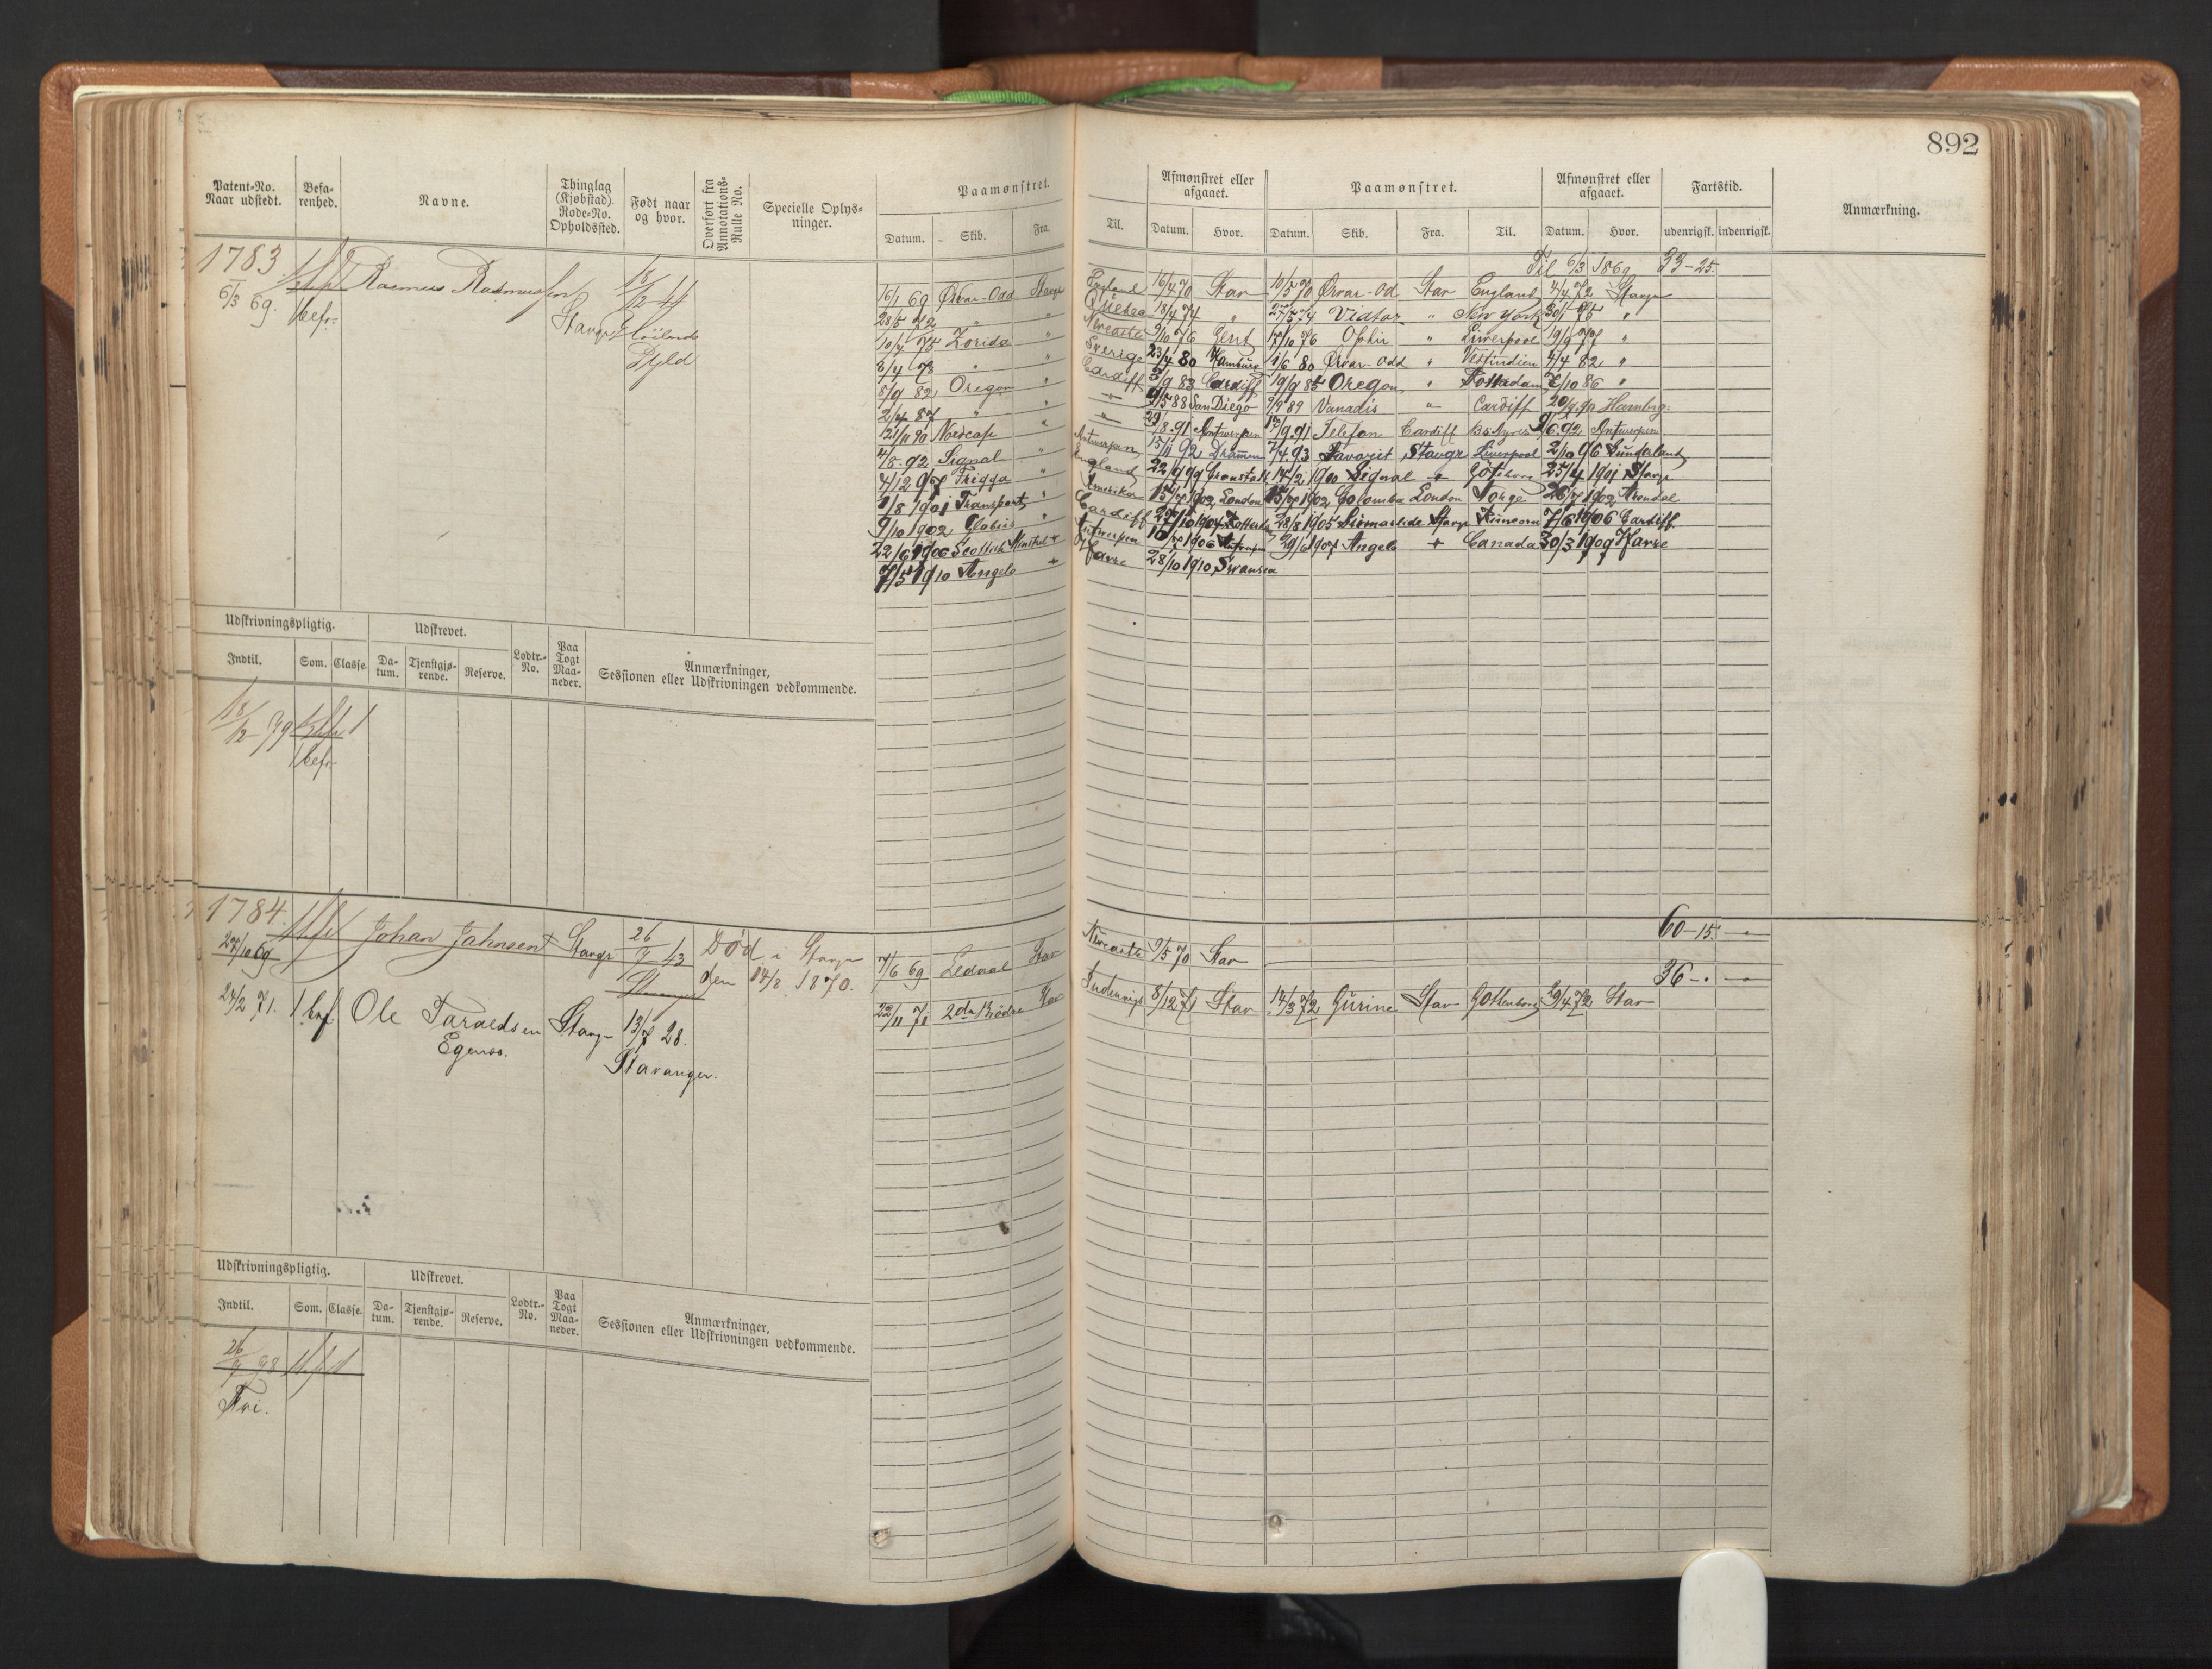 892
Patent-No. Naar udstedt.
Befa-renhed.
Navne.
Thinglag (Kjøbstad). Rode-No. Opholdssted.
Født naar og hvor.
Overført fra Annotations-Rulle No.
Specielle Oplys-ninger.
Paamønstret.
Datum. Skib. Fra.
Til.
Afmønstret eller afgaaet.
Datum. Hvor.
Paamønstret.
Datum. Skib. Fra. Til.
Afmønstret eller afgaaet.
Datum. Hvor.
Fartstid.
udenrigsk. indenrigsk.
Anmærkning.
Til 6/3 1869 33-25.
1783 Rasmus Rasmussen 18/12 44
6/3 69. 1 bef. Stavgr Høilands
Pgld
16/1 69 Ørvar-Odd Stavgr England 16/4 70 Stav 10/5 70 Ørvar-Od Stav England 4/4 72 Stavgr
28/5 72 " " Quebec 18/4 74 " 27/5 74 Vidfar " New York 30/1 75 "
10/4 75 Zorida " Newcastle 9/10 76 Gent 17/10 76 Ophir " Liverpool 19/9 77 "
8/4 78 " " Sverige 23/4 80 Hamburg 1/6 80 Ørvar-Odd " Vestindien 4/4 82 "
8/9 82 Oregon " Cardiff 3/9 83 Cardiff 19/9 85 Oregon " 2/10 86 "
2/4 87 " " " 9/5 88 San Diego 9/9 89 Vanadis " Cardiff 20/9 90 Hambrg.
12/11 90 Nordcap " " 29/8.91 Antwerpen 17/9.91 Telefon Cardiff Bs Ayres 9/6.92 Antwerpen
4/8.92 Signal " Antwerpen 15/11 92 Drammen 7/4.93 Favorit Stavgr Liverpool 2/10 96 Sundaland
4/12 97 Frigga " England 22/9 99 Cronstadt 14/2 1900 Signal + Göteborg 25/4 1901 Stavgr
1/8 1901 Transport " Amerika 15/7 1902 London 15/7 1902 Colombia London Norge 26/7 1902 Arendal
9/10 1902 " Cardiff 27/10 1904 Rotterdam 28/8 1905 Stavgr Runcorn 7/6 1906 Cardiff
22/6 1906 Scottish Minstrel + Antwerpen 10/7 1906 Antwerpen 29/6 1907 Angelo + Canada 30/3 1909 Havre
7/5 1910 Angelo + Havre 28/10 1910 Swansea
Udskrivningspligtig.
Udskrevet.
Indtil. Som. Classe. Da-tum. Tjenstgjø-rende. Reserve. Lodtr.-No. Paa Togt Maa-neder.
Anmærkninger, Sessionen eller Udskrivningen vedkommende.
18/12 79 1
1 bef.
1784. Johan Jahnsen Stavgr 26/9 43 Død i Stavgr
27/10 69 Stavanger den 14/8 1870.
7/6 69 Ledaal Stav Newcastle 9/5 70 Stav 60-15.
36-.
24/2 71. 1 bef. Ole Taraldsen Stavgr 13/7 28.
Egenæs. Stavanger.
22/11 71 2de Brødre Stav Indenrigs 8/12 71 Stav 14/3 72 Gurine Stav Gottenborg 29/4 72 Stav
Udskrivningspligtig.
Udskrevet.
Indtil. Som. Classe. Da-tum. Tjenstgjø-rende. Reserve. Lodtr.-No. Paa Togt Maa-neder.
Anmærkninger, Sessionen eller Udskrivningen vedkommende.
26/9 98 1
Fri.